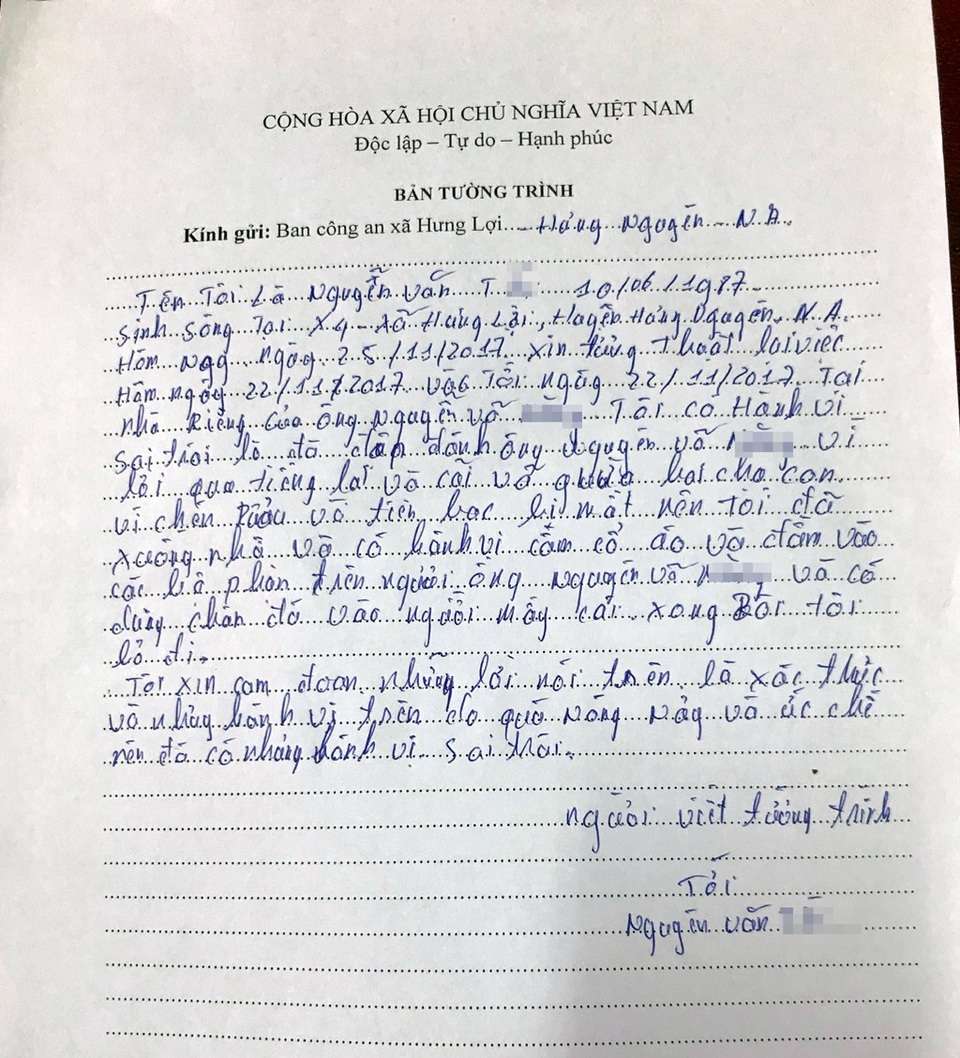 CỘNG HÒA XÃ HỘI CHỦ NGHĨA VIỆT NAM
Độc lập – Tự do – Hạnh phúc
BẢN TƯỜNG TRÌNH
Kính gửi: Ban công an xã Hưng Lợi Hưng Nguyên N.A.
Tên Tôi Là Nguyễn Văn T 10/06/1987
Sinh sống Tại X4 - xã Hưng Lợi, Huyện Hưng Nguyên, N.A.
Hôm nay ngày 25/11/2017 xin tường Thuật lại việc
Hôm ngày 22/11/2017 vào Tối ngày 22/11/2017 Tại
nhà Riêng của ông Nguyễn vă Tôi có Hành vi
sai trái là đã đập đánh ông Nguyễn vă N vì
lời qua tiếng lại và cãi vã giữa hai cha con
vì chén rượu và tiền bạc bị mất nên tôi đã
xuống nhà và có hành vi cầm cổ áo và đấm vào
các bộ phận trên người ông Nguyễn vă N và có
dùng chân đá vào người mấy cái xong rồi tôi
bỏ đi.
Tôi xin cam đoan những lời nói trên là xác thực
và những hành vi trên do quá nóng nảy và ức chế
nên đã có những hành vi sai trái.
người viết tường trình
Tôi
Nguyễn văn T